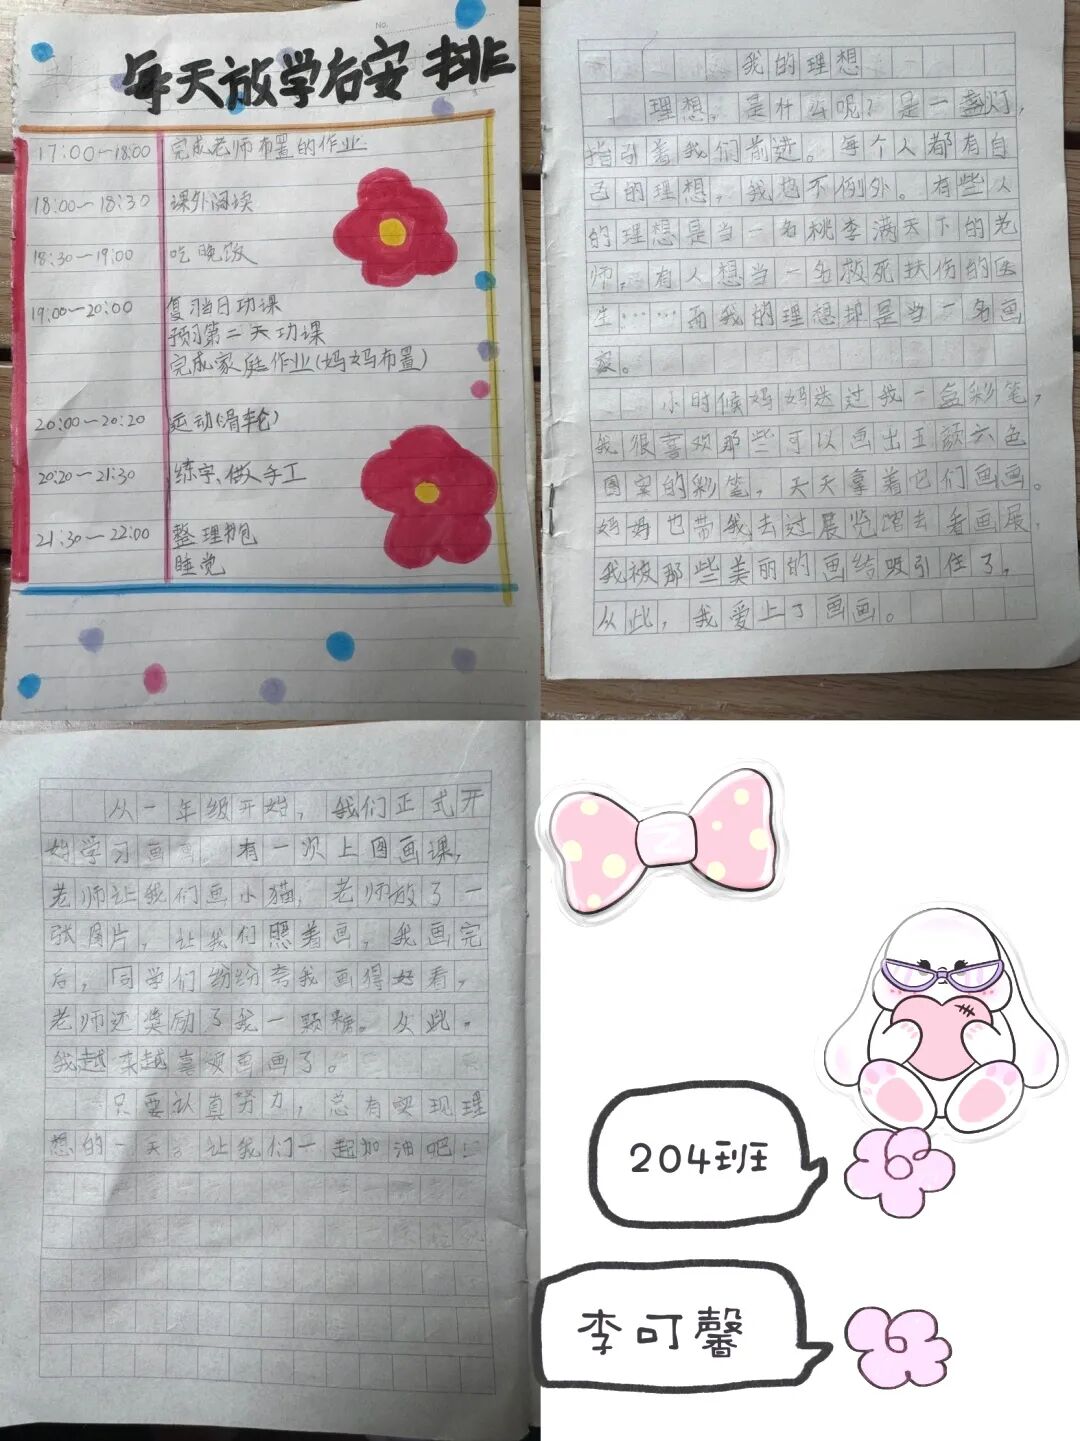 No.
每天放学后安排
17:00—18:00 完成老师布置的作业
18:00—18:30 课外阅读
18:30—19:00 吃晚饭
19:00—20:00 复习当日功课
预习第二天功课
完成家庭作业(妈妈布置)
20:00—20:20 运动(滑轮)
20:20—21:30 练字、做手工
21:30—22:00 整理书包
睡觉
我的理想
理想,是什么呢?是一盏灯,
指引着我们前进。每个人都有自
己的理想,我也不例外。有些人
的理想是当一名桃李满天下的老
师,有人想当一名救死扶伤的医
生……而我的理想却是当一名画
家。
小时候妈妈送过我一盒彩笔,
我很喜欢那些可以画出五颜六色
图案的彩笔,天天拿着它们画画。
妈妈也带我去过展览馆去看画展,
我被那些美丽的画给吸引住了。
从此,我爱上了画画。
从一年级开始,我们正式开
始学习画画 有一次上图画课,
老师让我们画小猫,老师放了一
张图片,让我们照着画,我画完
后,同学们纷纷夸我画得好看,
老师还奖励了我一颗糖。从此。
我越来越喜爱画画了。
只要认真努力,总有实现理
想的一天。让我们一起加油吧!
204班
李叮馨